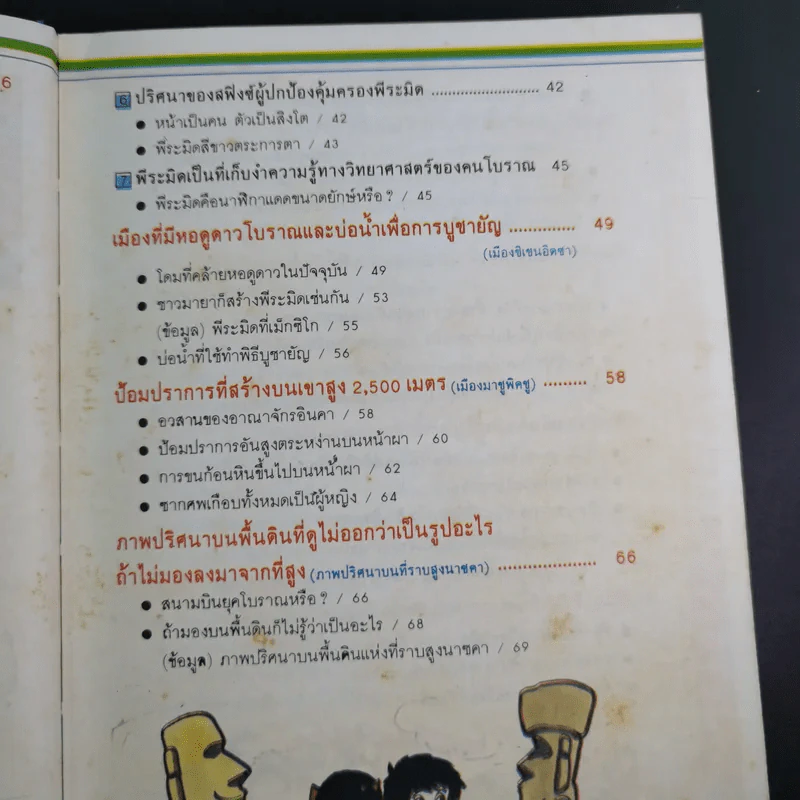 6
6 ปริศนาของสฟิงซ์ผู้ปกป้องคุ้มครองพีระมิด .......................... 42
● หน้าเป็นคน ตัวเป็นสิงโต / 42
● พีระมิดสีขาวตระการตา / 43
7 พีระมิดเป็นที่เก็บงำความรู้ทางวิทยาศาสตร์ของคนโบราณ 45
● พีระมิดคือนาฬิกาแดดขนาดยักษ์หรือ? / 45
เมืองที่มีหอดูดาวโบราณและบ่อน้ำเพื่อการบูชายัญ .............. 49
(เมืองชิเชนอิตซา)
● โดมที่คล้ายหอดูดาวในปัจจุบัน / 49
● ชาวมายาก็สร้างพีระมิดเช่นกัน / 53
(ข้อมูล) พีระมิดที่เม็กซิโก / 55
● บ่อน้ำที่ใช้ทำพิธีบูชายัญ / 56
ป้อมปราการที่สร้างบนเขาสูง 2,500 เมตร (เมืองมาชูพิคชู) ......... 58
● อวสานของอาณาจักรอินคา / 58
● ป้อมปราการอันสูงตระหง่านบนหน้าผา / 60
● การขนก้อนหินขึ้นไปบนหน้าผา / 62
● ซากศพเกือบทั้งหมดเป็นผู้หญิง / 64
ภาพปริศนาบนพื้นดินที่ดูไม่ออกว่าเป็นรูปอะไร
ถ้าไม่มองลงมาจากที่สูง (ภาพปริศนาบนที่ราบสูงนาซคา) .................... 66
● สนามบินยุคโบราณหรือ? / 66
● ถ้ามองบนพื้นดินก็ไม่รู้ว่าเป็นอะไร / 68
(ข้อมูล) ภาพปริศนาบนพื้นดินแห่งที่ราบสูงนาซคา / 69